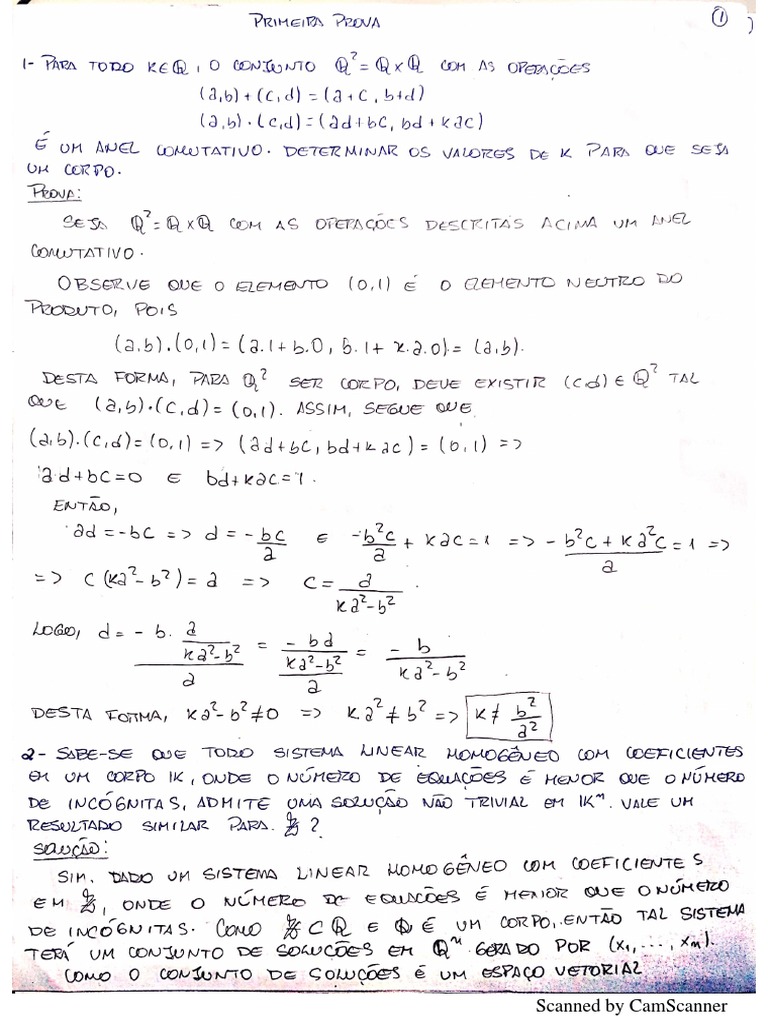 PRIMEIRA PROVA
①
1- PARA TODO K∈ℚ, O CONJUNTO ℚ² = ℚ×ℚ COM AS OPERAÇÕES
(a,b)+(c,d)=(a+c, b+d)
(a,b)·(c,d)=(ad+bc, bd+kac)
É UM ANEL COMUTATIVO. DETERMINAR OS VALORES DE K PARA QUE SEJA
UM CORPO.
PROVA:
SEJA ℚ²=ℚ×ℚ COM AS OPERAÇÕES DESCRITAS ACIMA UM ANEL
COMUTATIVO.
OBSERVE QUE O ELEMENTO (0,1) É O ELEMENTO NEUTRO DO
PRODUTO, POIS
(a,b).(0,1)=(a.1+b.0, b.1+k.a.0)=(a,b).
DESTA FORMA, PARA ℚ² SER CORPO, DEVE EXISTIR (c,d)∈ℚ² TAL
QUE (a,b)·(c,d)=(0,1). ASSIM, SEGUE QUE
(a,b).(c,d)=(0,1) => (ad+bc, bd+kac)=(0,1) =>
ad+bc=0 E bd+kac=1.
ENTÃO,
ad=-bc => d=-bc/a E -b²c/a + kac=1 => -b²c+ka²c/a=1 =>
=> c(ka²-b²)=a => c=a/ka²-b².
LOGO, d=-b.a/ka²-b²/a = -ba/ka²-b²/a = -b/ka²-b²
DESTA FORMA, ka²-b²≠0 => ka²≠b² => k≠b²/a²
2- SABE-SE QUE TODO SISTEMA LINEAR HOMOGÊNEO COM COEFICIENTES
EM UM CORPO IK, ONDE O NÚMERO DE EQUAÇÕES É MENOR QUE O NÚMERO
DE INCÓGNITAS, ADMITE UMA SOLUÇÃO NÃO TRIVIAL EM IKᵐ. VALE UM
RESULTADO SIMILAR PARA ℤ?
SOLUÇÃO:
SIM. DADO UM SISTEMA LINEAR HOMOGÊNEO COM COEFICIENTES
EM ℤ, ONDE O NÚMERO DE EQUAÇÕES É MENOR QUE O NÚMERO
DE INCÓGNITAS. COMO ℤ⊂ℚ E ℚ É UM CORPO, ENTÃO TAL SISTEMA
TERÁ UM CONJUNTO DE SOLUÇÕES EM ℚᵐ GERADO POR (x₁,...,xₘ).
COMO O CONJUNTO DE SOLUÇÕES É UM ESPAÇO VETORIAL
Scanned by CamScanner